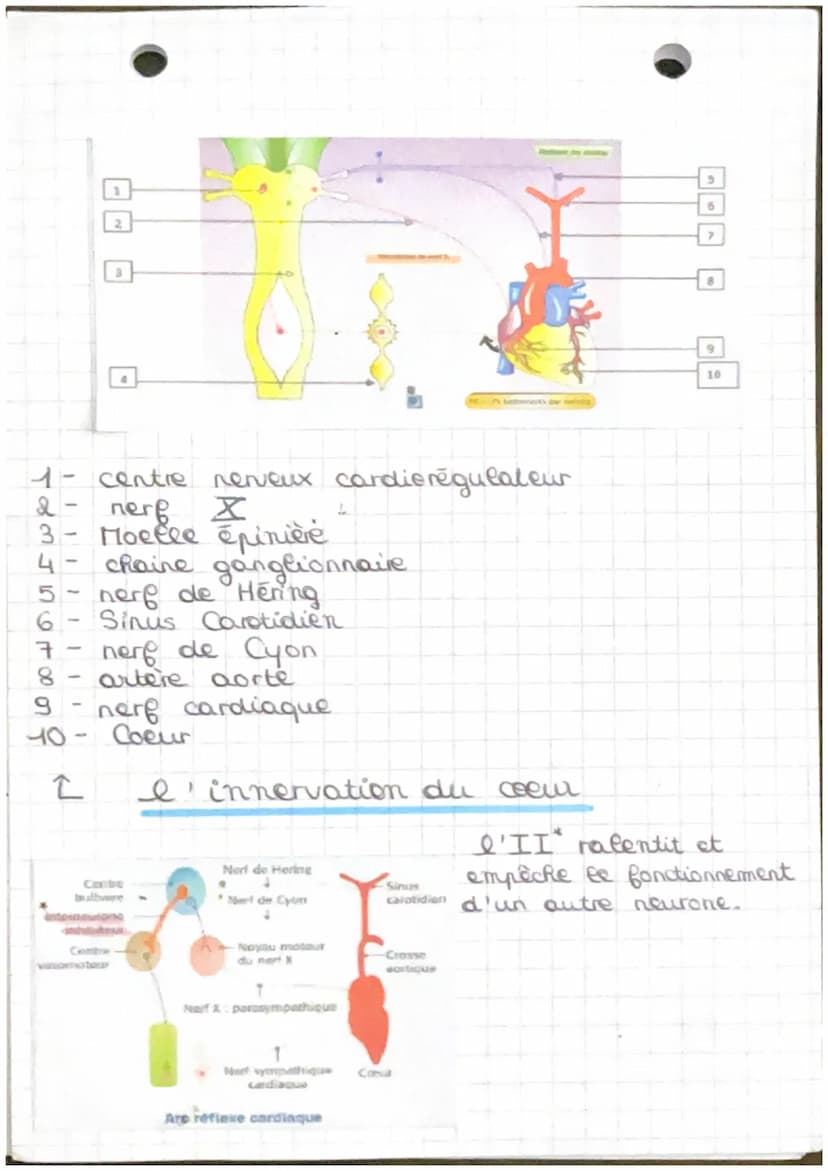 1
2
3
4
5
6
7
8
9
10
1 - centre nerveux cardierégulateur
2 - nerf X
3 - Moelle épinière
4 - chaine ganglionnaire
5 - nerf de Héring
6 - Sinus Carotidien
7 - nerf de Cyon
8 - artère aorte
9 - nerf cardiaque
10 - Coeur
↑ l'innervation du coeur
l'II* ralentit et
empêche le fonctionnement
d'un autre neurone.
Nerf de Hering
Centre
bulbaire
Nerf de Cyon
Sinus
carotidien
* interneurone
inhibiteur
Centre
vasomoteur
Noyau moteur
du nerf X
Crosse
aortique
Nerf X : parasympathique
Nerf sympathique
cardiaque
Cœur
Arc réflexe cardiaque